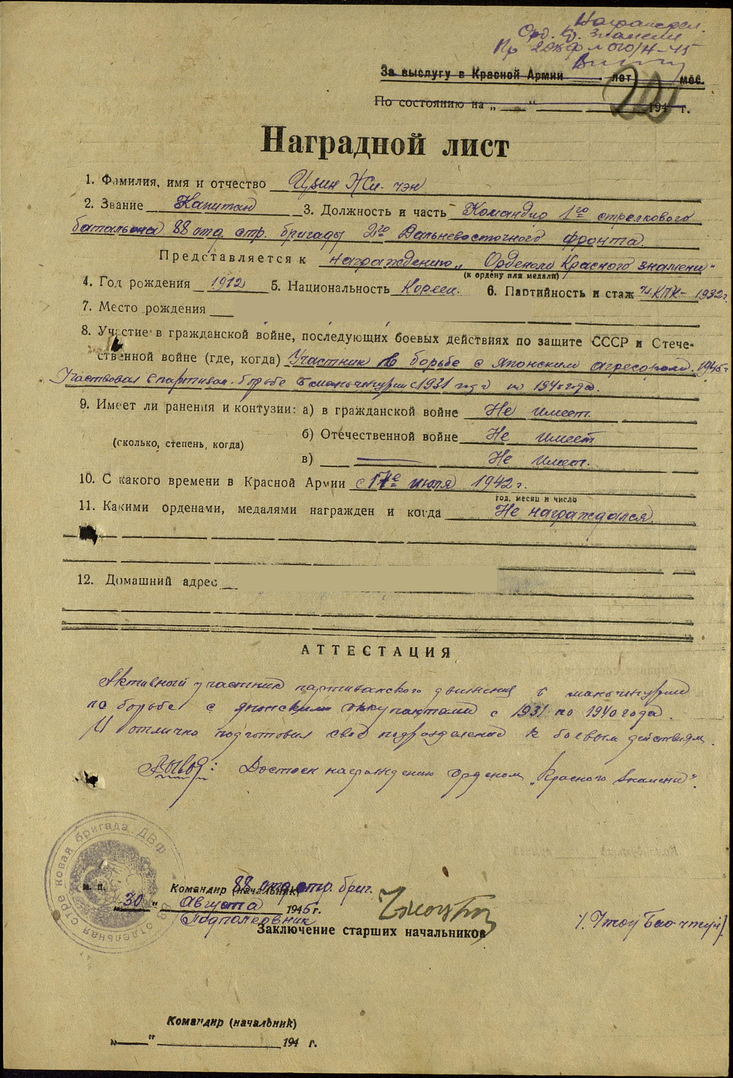 Награжден
Орд. Кр. Знамени
Пр 2 ДВФ № 010/н-45
За выслугу в Красной Армии лет мес.
По состоянию на „ “ 194 г.
Наградной лист
1. Фамилия, имя и отчество Цзин Жи-чэн
2. Звание Капитан 3. Должность и часть Командир 1го стрелкового
батальона 88 отд стр. бригады 2го Дальневосточного фронта.
Представляется к награждению „Орденом Красного знамени“
(к ордену или медали)
4. Год рождения 1912 5. Национальность Кореец. 6. Партийность и стаж чл КПК - 1932г
7. Место рождения
8. Участие в гражданской войне, последующих боевых действиях по защите СССР и Отече-
ственной войне (где, когда) Участник в борьбе с японским агресорами 1945г
Участвовал в партизан. борьбе в маньчжурии с 1931 год по 1940 года.
9. Имеет ли ранения и контузии: а) в гражданской войне Не имеет.
(сколько, степень, когда) б) Отечественной войне Не имеет
в) Не имеет.
10. С какого времени в Красной Армии с 17го июля 1942 г.
год, месяц и число
11. Какими орденами, медалями награжден и когда Не награждался
12. Домашний адрес
АТТЕСТАЦИЯ
Активный участник партизанского движения в маньчжурии
по борьбе с японскими оккупантами с 1931 по 1940 года.
И отлично подготовил своё подразделение к боевым действиям.
Вывод: Достоен награждению орденом „Красного Знамени“.
отдельная стрелковая бригада ДВФ
м. п. Командир (начальник) 88 отд стр. бриг.
„30“ Августа 1945г.
Подполковник /Чжоу Бао-чжун/
Заключение старших начальников
Командир (начальник)
„ “ 194 г.